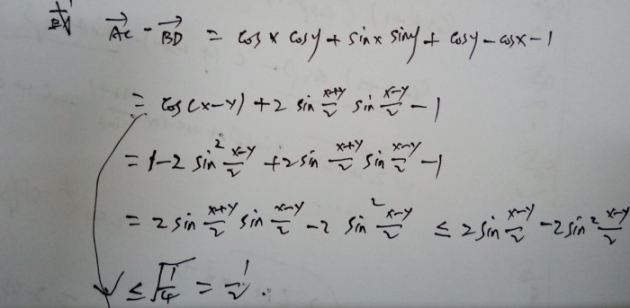 或 $\overrightarrow{AC} \cdot \overrightarrow{BD} = \cos x \cos y + \sin x \sin y + \cos y - \cos x - 1$
$= \cos(x-y) + 2 \sin \frac{x+y}{2} \sin \frac{x-y}{2} - 1$
$= 1 - 2 \sin^2 \frac{x-y}{2} + 2 \sin \frac{x+y}{2} \sin \frac{x-y}{2} - 1$
$= 2 \sin \frac{x+y}{2} \sin \frac{x-y}{2} - 2 \sin^2 \frac{x-y}{2} \leq 2 \sin \frac{x-y}{2} - 2 \sin^2 \frac{x-y}{2}$
$\leq \sqrt{\frac{1}{4}} = \frac{1}{2}.$